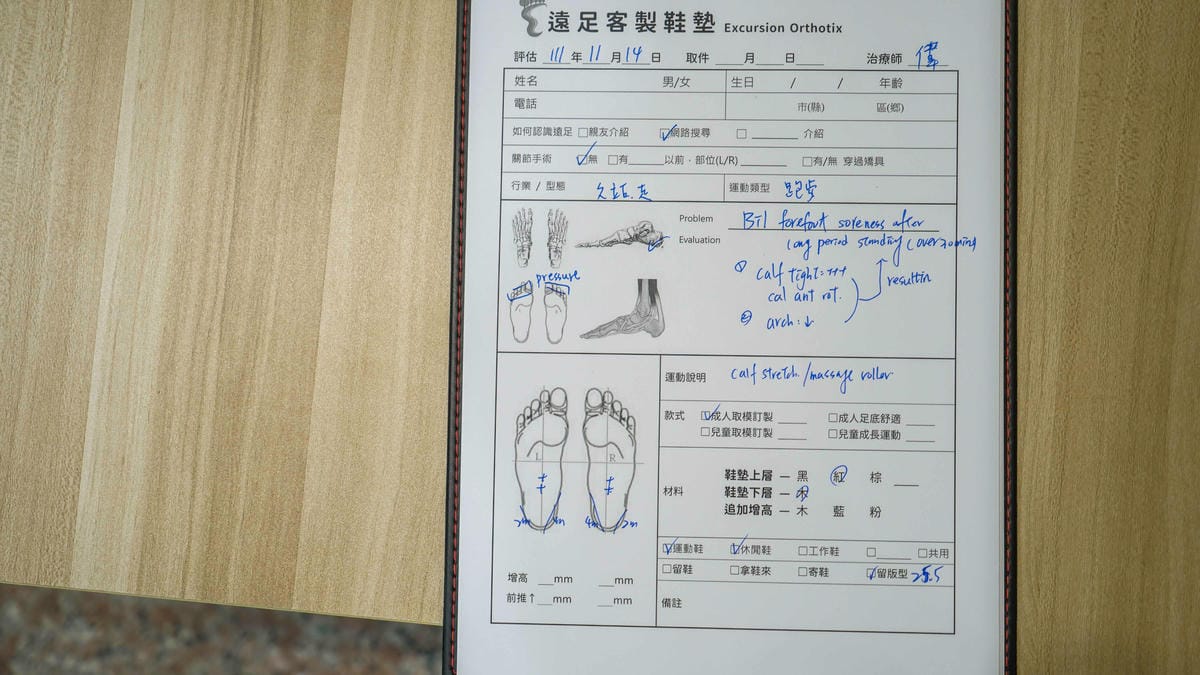 遠足客製鞋墊 Excursion Orthotix
評估 111 年 11 月 14 日 取件 ___月___日___ 治療師 偉
姓名 男/女 生日 / / 年齡
電話 市(縣) 區(鄉)
如何認識遠足 □親友介紹 ☑網路搜尋 □ ______ 介紹
關節手術 ☑無 □有____以前，部位(L/R)______ □有/無 穿過矯具
行業 / 型態 久站.走 運動類型 跑步
Problem Bil forefoot soreness after
Evaluation long period standing (over 30min)
pressure
① calf tight:+++
cal ant rot.
② arch:↓
resultin
運動說明 calf stretch./massage roller
款式 ☑成人取模訂製 ____ □成人足底舒適 ____
□兒童取模訂製 ____ □兒童成長運動 ____
L R
材料
鞋墊上層 — 黑 紅 棕 ___
鞋墊下層 — 木
追加增高 — 木 藍 粉
2m 4m 4m 2m
☑運動鞋 ☑休閒鞋 □工作鞋 □_____ □共用
□留鞋 □拿鞋來 □寄鞋 ☑留版型 25.5
增高 __mm __mm
前推↑__mm __mm
備註